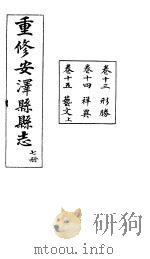 重修安澤縣縣志 七册
卷十三 形勝
卷十四 祥異
卷十五 藝文上
mtoou.info